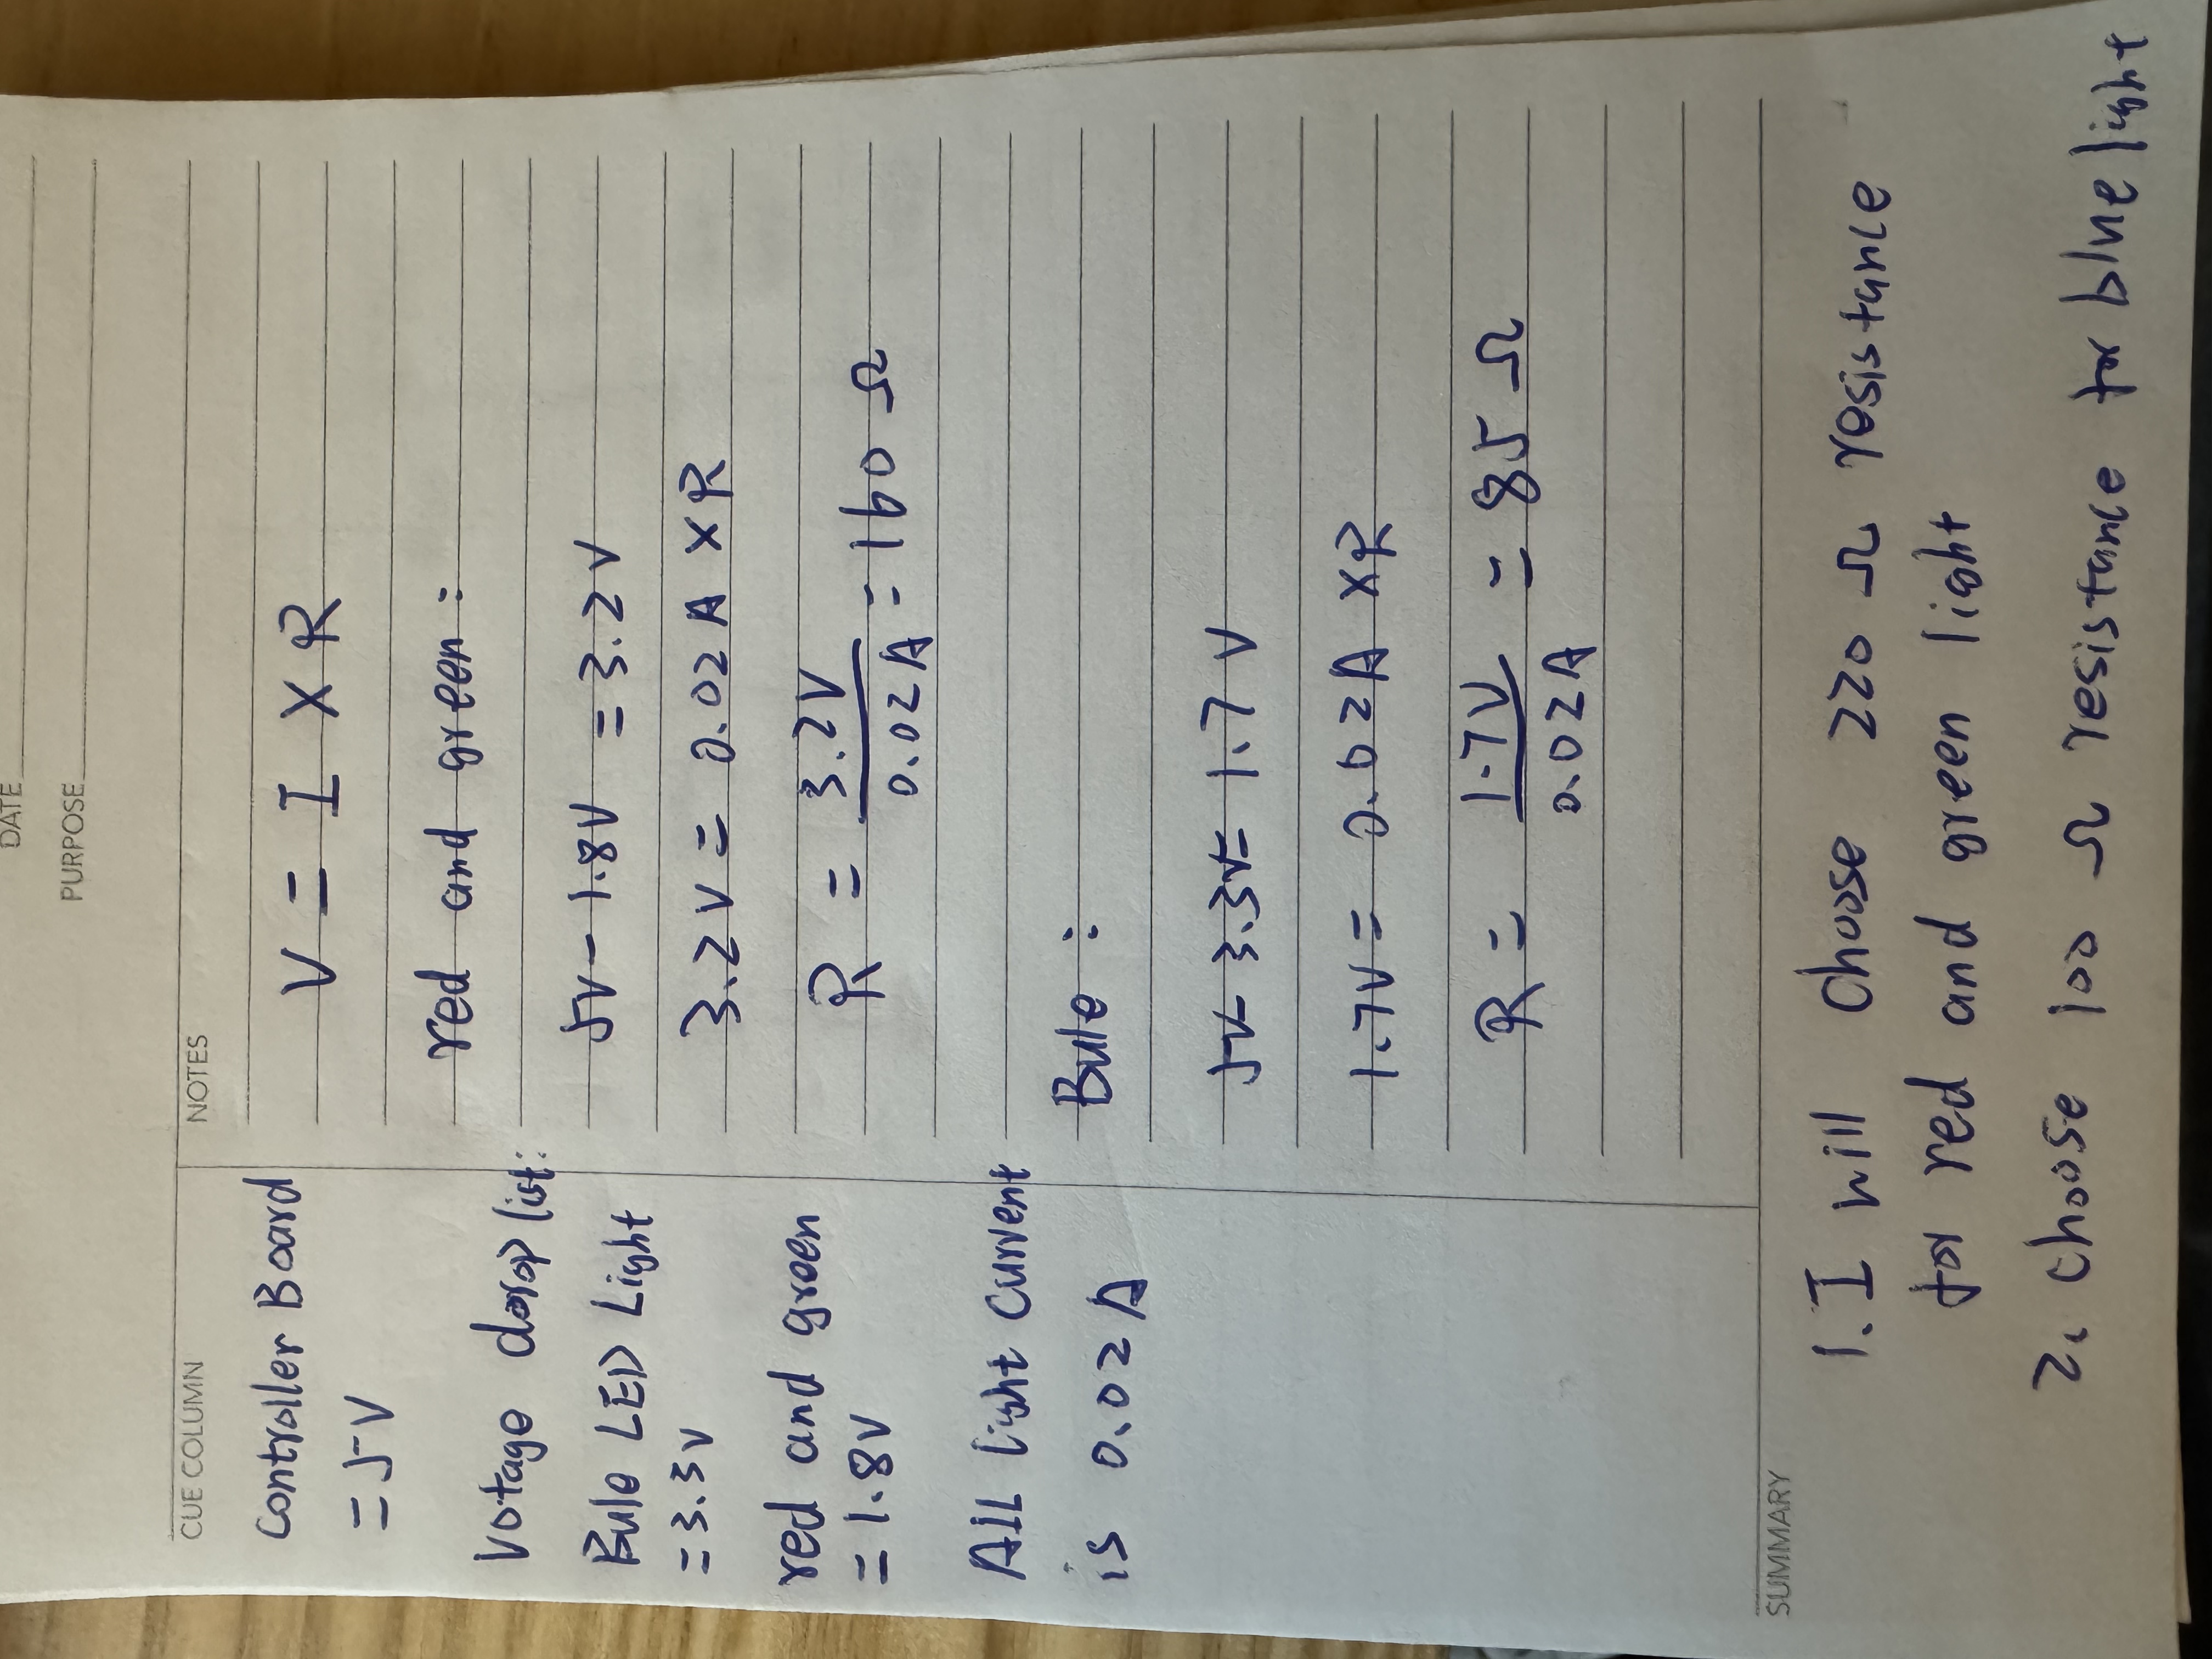 DATE
PURPOSE
CUE COLUMN
Controller Board
= 5V
Votage dorop list:
Bule LED Light
= 3.3V
red and green
= 1.8V
All light current
is 0.02A
NOTES
V = I X R
red and green :
5V - 1.8V = 3.2V
3.2V = 0.02A X R
R = 3.2V
0.02A = 160 Ω
Bule :
5V - 3.3V = 1.7V
1.7V = 0.02A X R
R = 1.7V = 85 Ω
0.02A
SUMMARY
1. I will choose 220 Ω resistance
for red and green light
2. choose 100 Ω resistance for blue light